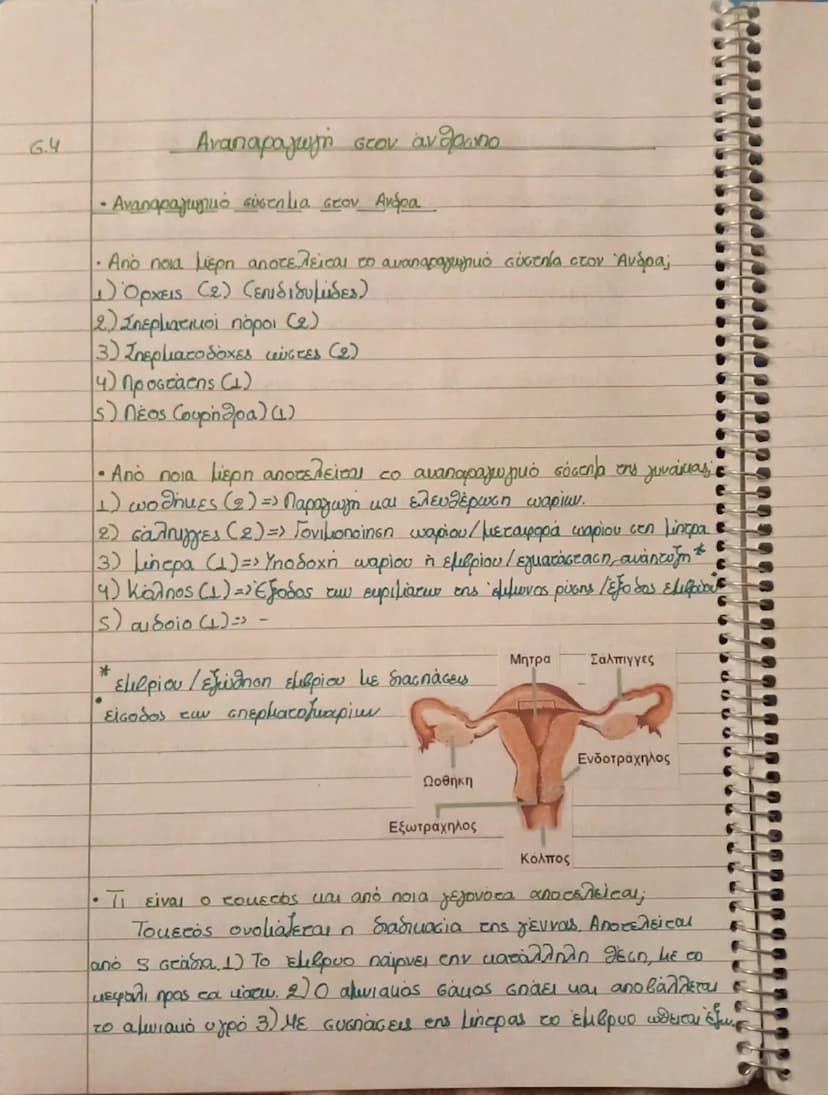 6.4 Αναπαραγωγή στον άνθρωπο
• Αναπαραγωγικό σύστημα στον Άνδρα
• Από ποια μέρη αποτελείται το αναπαραγωγικό σύστημα στον Άνδρα;
1) Όρχεις (2) (επιδιδυμίδες)
2) Σπερματικοί πόροι (2)
3) Σπερματοδόχες κύστες (2)
4) Προστάτης (1)
5) Πέος (ουρήθρα) (1)
• Από ποια μέρη αποτελείται το αναπαραγωγικό σύστημα της γυναίκας;
1) ωοθήκες (2) => Παραγωγή και ελευθέρωση ωαρίων.
2) σάλπιγγες (2) => Γονιμοποίηση ωαρίου/μεταφορά ωαρίου στη μήτρα
3) μήτρα (1) => Υποδοχή ωαρίου ή εμβρίου/εγκατάσταση, ανάπτυξη *
4) Κόλπος (1) => Έξοδος των της έμμηνος ρύσης /έξοδος εμβρύου•
5) αιδοίο (1) => -
* εμβρίου/εξώθηση εμβρίου με διασπάσεις
• είσοδος των σπερματοζωαρίων
Μητρα Σάλπιγγες
Ενδοτράχηλος
Ωοθήκη
Εξωτράχηλος
Κόλπος
• Τι είναι ο τοκετός και από ποια γεγονότα αποτελείται;
Τοκετός ονομάζεται η διαδικασία της γέννας. Αποτελείται
από 5 στάδια. 1) Το έμβρυο παίρνει την κατάλληλη θέση, με το
κεφάλι προς τα κάτω. 2) Ο αμνιακός σάκος σπάει και αποβάλλεται
το αμνιακό υγρό 3) Με συσπάσεις της μήτρας το έμβρυο ωθείται έξω.